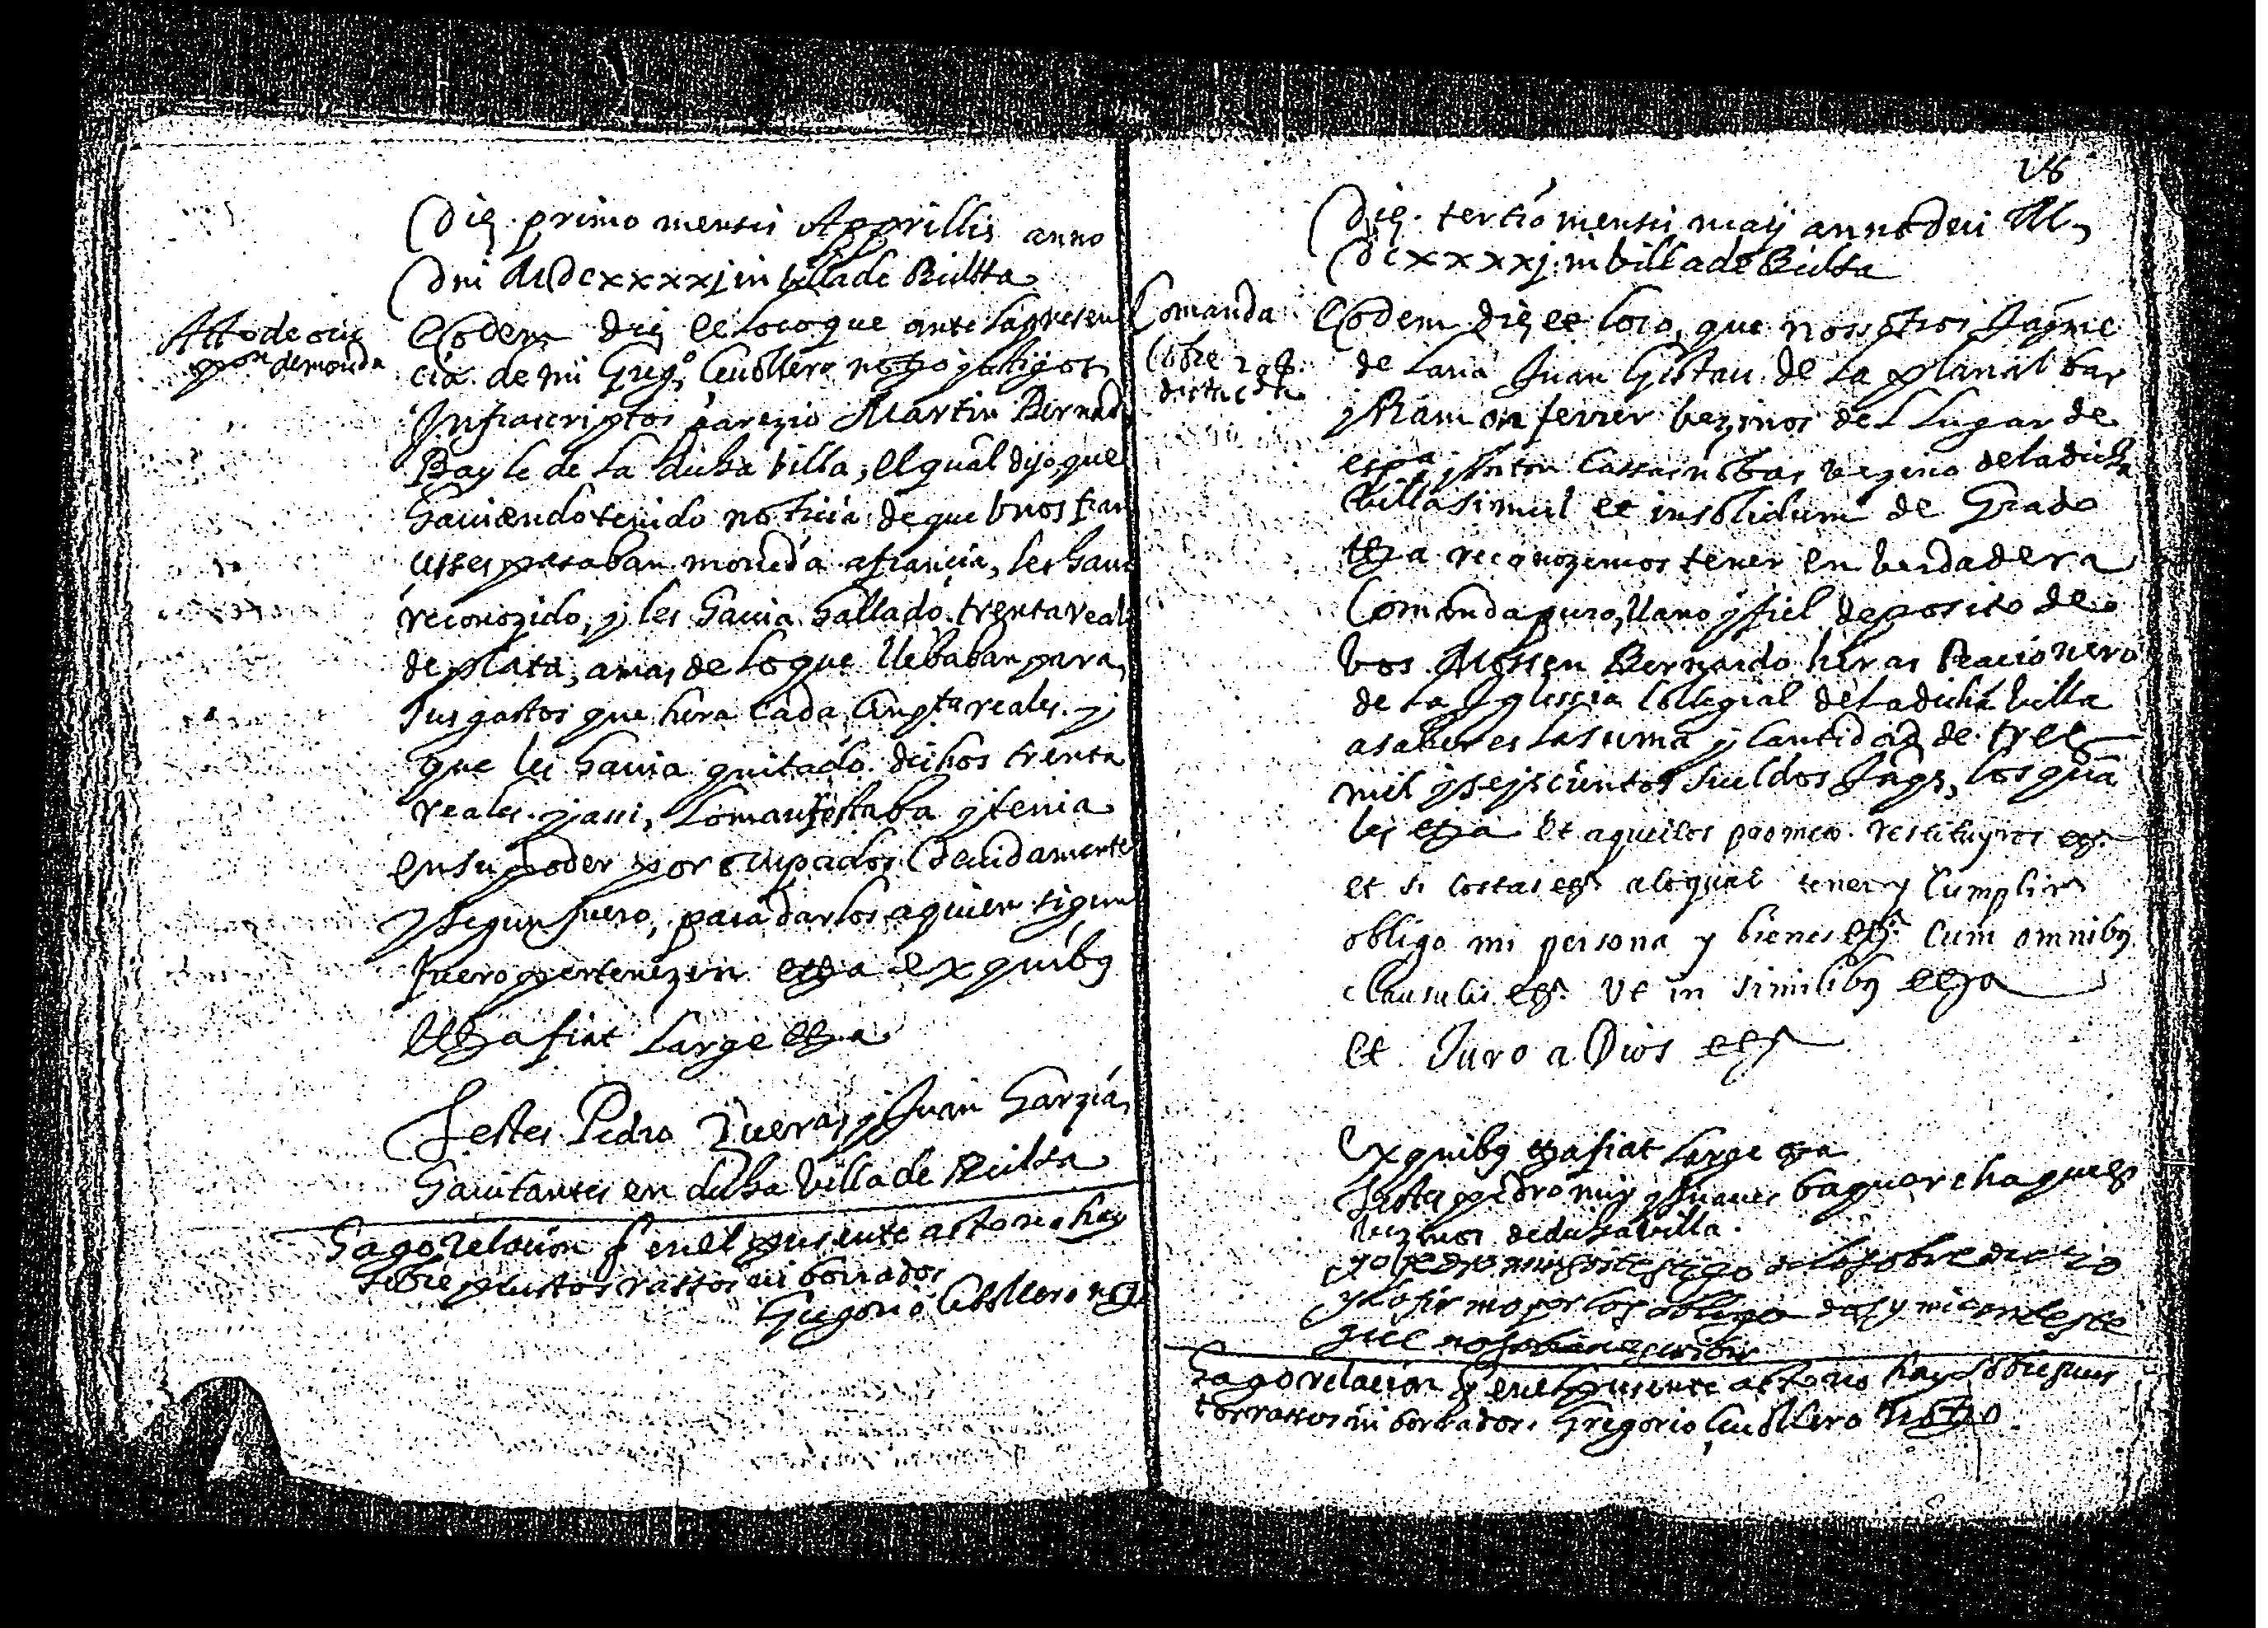 Die primo mensis Apprillis anno
Dni MDCxxxxj in villa de Bielssa
Atto de ocu
pon de moneda
Eodem die et loco que ante la presen
cia de mi Greg.o Ceullero notto y testigos
Infrascriptos parezio Martin Bernad
Bayle de la dicha villa, el qual dijo que
haviendo tenido noticia de que unos fran
cesses passaban moneda a francia, les havia
reconozido, y les havia hallado trenta reales
de plata, a mas de lo que llebaban para
sus gastos que hera cada cinqta reales y
que les havia quitado dichos trenta
reales y assi, lo manifestaba y tenia
en su poder por ocupados devidamente
y segun fuero, para darlos a quien sigun
fuero pertenezen etza ex quibus
etza fiat large etza
Testes Pedro Zueras y Juan Garzia,
havitantes en dicha villa de Bielssa
hago relacion q en el presente acto no hay
sobrepuestos rassos ni borrados
Gregorio Ceullero notto
18
Die tertio mensis maij anno dni M
DCxxxxj in villa de Bielsa
Comanda
Eodem die et loco, que nosotros Jayme
de Laria Juan Gistau de la plana
y Ramon ferrer bezinos del Lugar de
espa y Anton Cassasnobas vezino de la dicha
villa simul et insolidum de Grado
etza reconozemos tener en verdadera
Comanda puro, llano y fiel deposito de
vos Mossen Bernardo heras Racionero
de la Iglessia Collegial de la dicha villa
a saber es la suma y cantidad de tres
mil y seyscientos sueldos Jaqs, los qua
les etza et aquellos prometo restituyros etz.
et si costas etz. a lo qual tener y Cumplir
obligo mi persona y bienes etz. Cum omnibus
clausulis etz. ut in similibus etza
et Juro a Dios etz
Ex quibus etza fiat large etza
Testes pedro mur y Juanes baquer chaques
vezinos de dicha villa
yo pedro mur soi testigo de lo sobre dicho
y lo firmo por los obligados y mi conteste
que no sabian escribir
hago relacion q en el presente acto no hay sobrepues
tos rassos ni borrados. Gregorio Ceullero notto